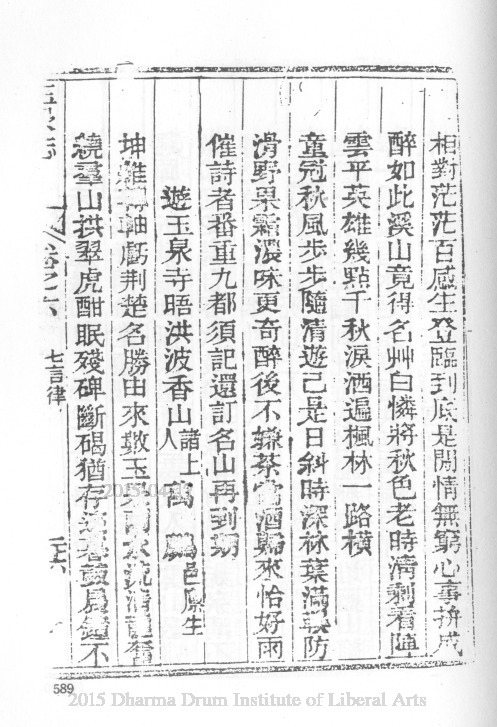 相對茫茫百感生登臨到底是閒情無窮心事拚成
醉如此溪山竟得名艸白憐將秋色老時清剩看陣
雲平英雄幾點千秋淚洒遍楓林一路橫
童冠秋風步步隨清遊已是日斜時深林葉滿防
滑野果霜濃味更奇醉後不嫌茶當酒歸來恰好雨
催詩者番重九都須記還訂名山再到期
遊玉泉寺晤洪波香山諸上人 萬鵬邑廩生
坤維軸荆楚名勝由來數玉
繞羣山拱翠虎酣眠殘碑斷碣猶存暮鼓晨鐘不
卷之六
七言律
589
2015 Dharma Drum Institute of Liberal Arts